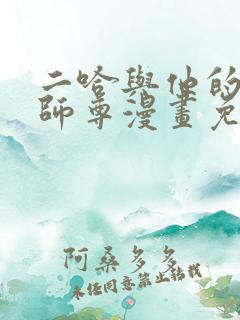 二哈與他的
師尊漫畫免
阿桑多多
未经同意禁止转载